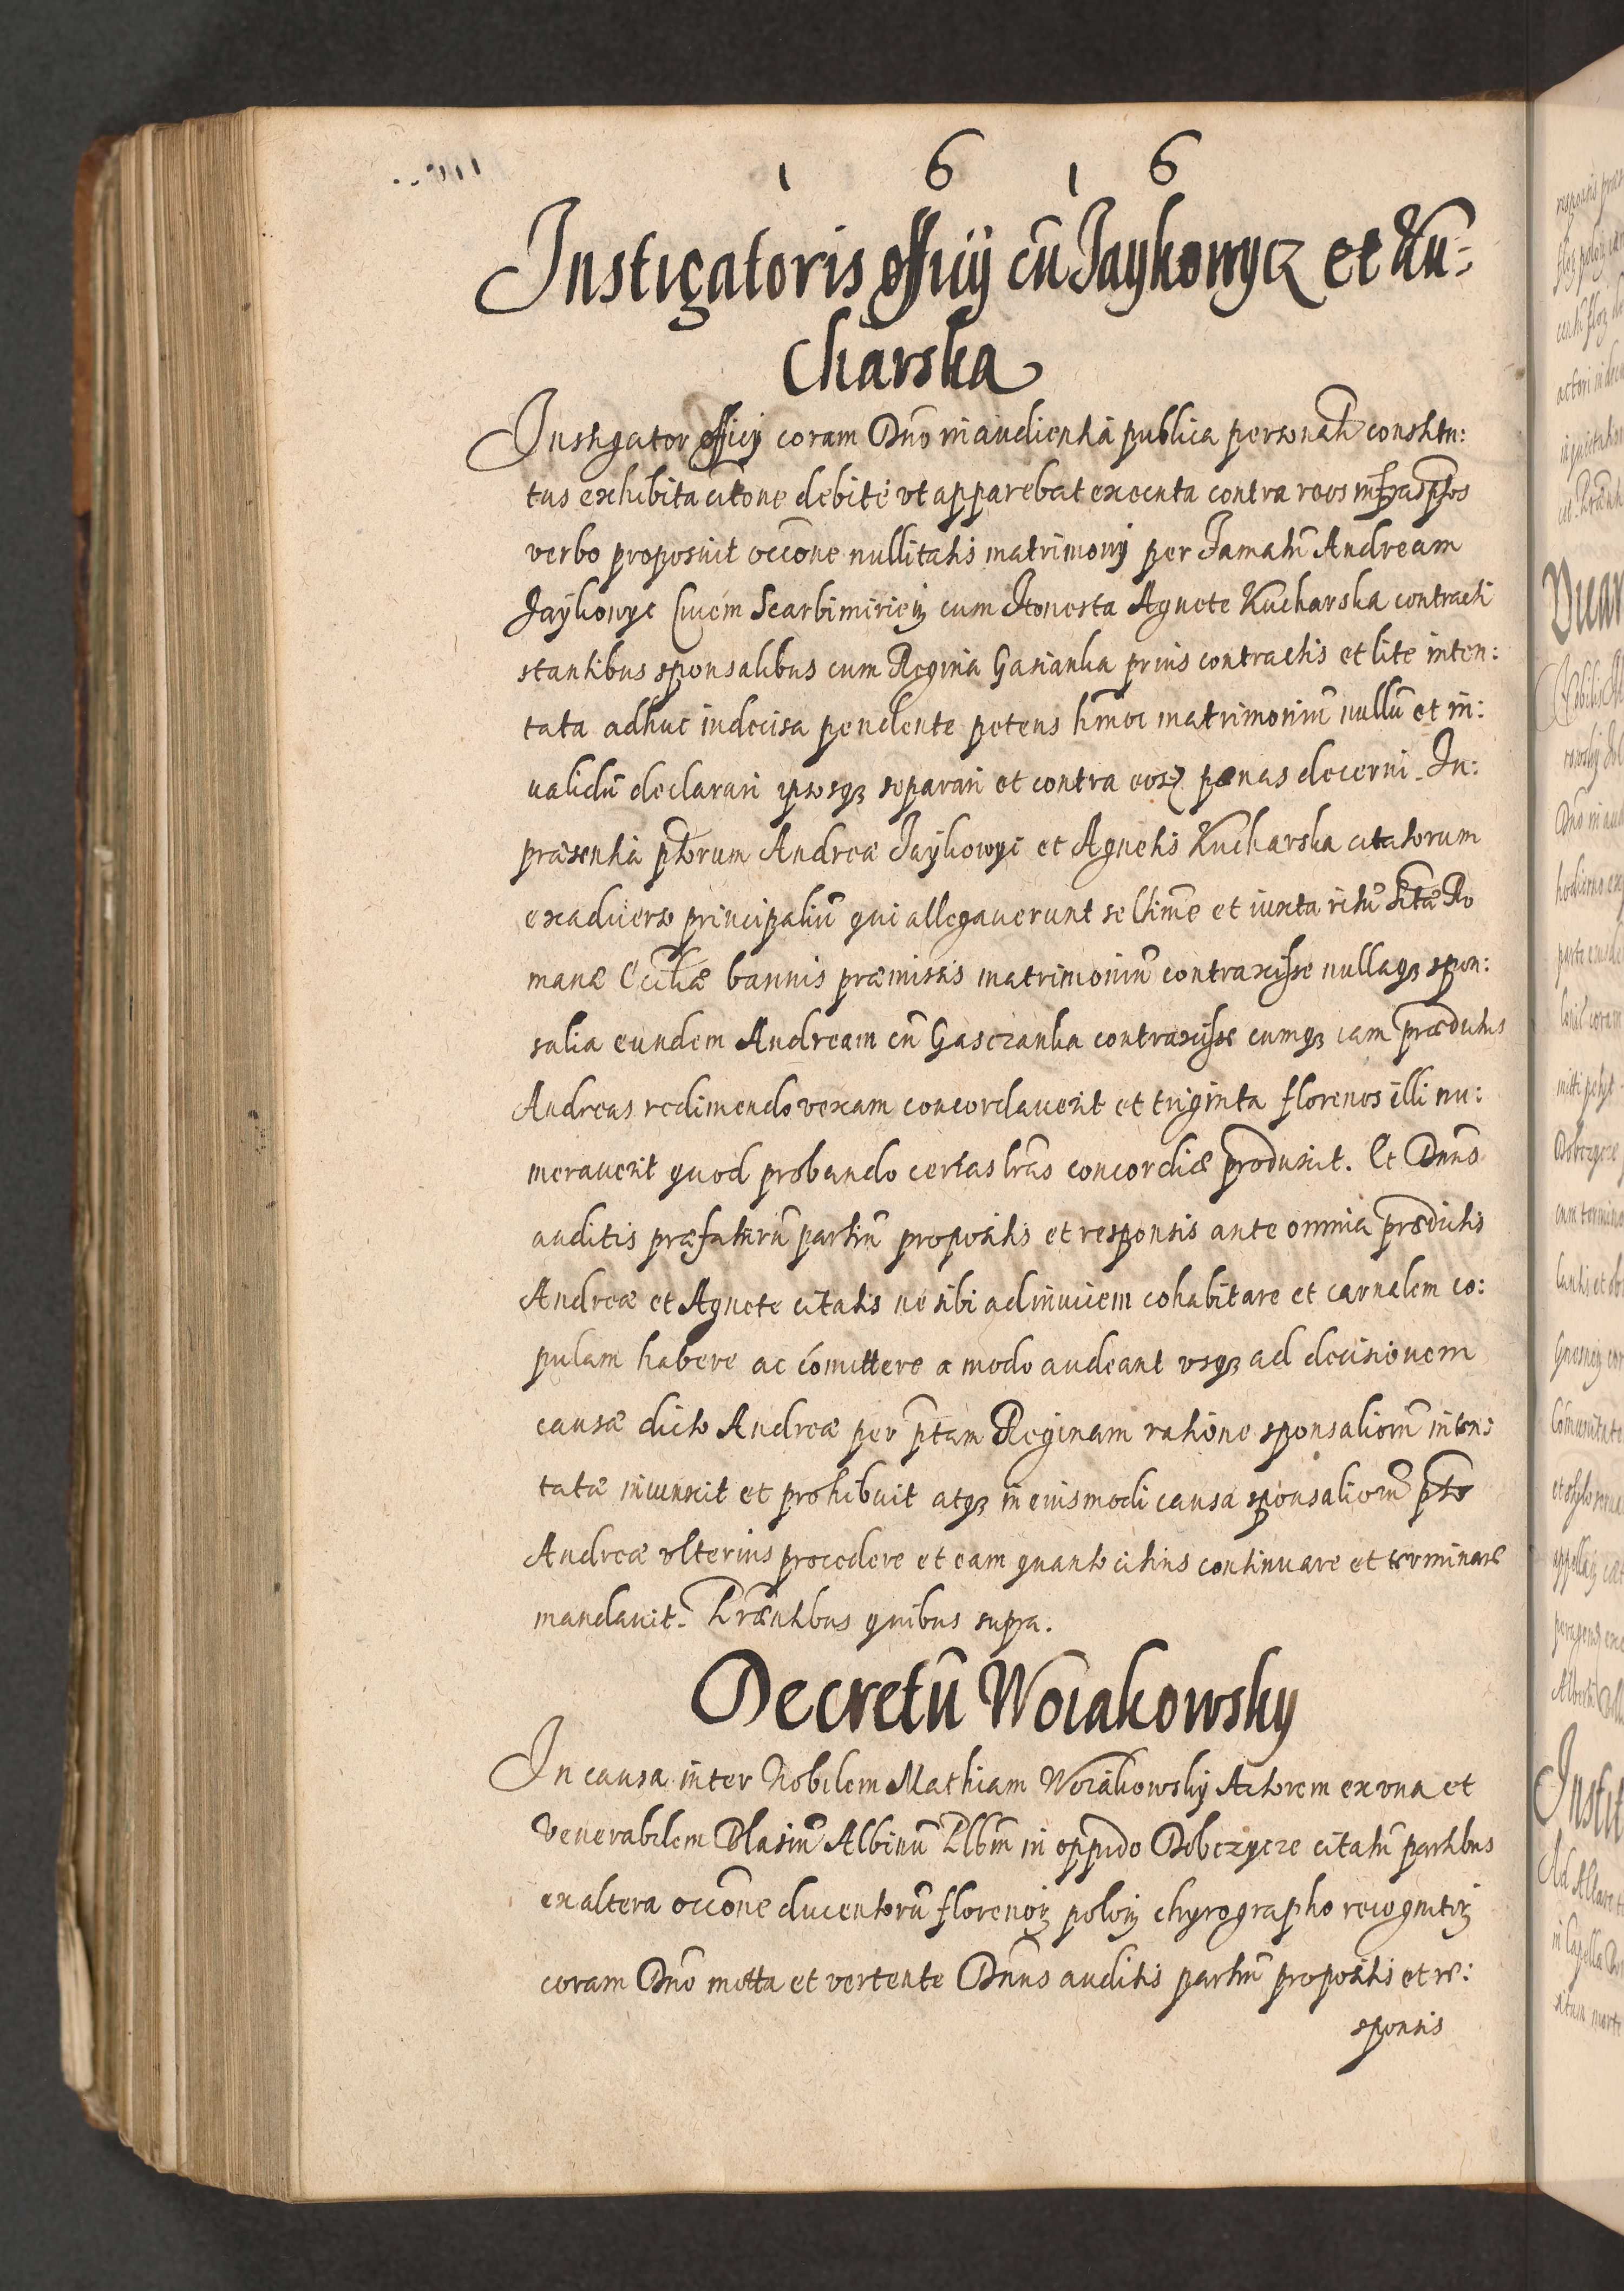 1 6 1 6
Instigatoris officij cũ Jaykowycz et Ku:
charska
Instigator officij coram Dño in audientia publica personalr̃ constitu:
tus exhibita citõne debitè vt apparebat executa contra reos infrascp̃tos
verbo proposuit occõne nullitatis matrimonij per Famatũ Andream
Jaykowyc Ciuem Scarbimirieñ cum Honesta Agnete Kucharska contracti
stantibus sponsalibus cum Regina Gasianka prius contractis et lite inten:
tata adhuc indecisa pendente petens hm̃oi matrimoniũ nullũ et in:
ualidũ declarari ipsosqꝫ separari et contra eosꝫ pœnas decerni. In:
præsentia ptõrum Andreæ Jaykowyc et Agnetis Kucharska citatorum
exaduerso principaliũ qui allegauerunt se ltimẽ et iuxta ritũ Sctæ̃ Ro
manæ Eccliæ̃ bannis præmissis matrimoniũ contraxisse nullaqꝫ spon:
salia eundem Andream cũ Gasczanka contraxisse cumqꝫ eam prædictus
Andreas redimendo vexam concordauerit et triginta florenos illi nu:
merauerit quod probando certas lrãs concordiæ produxit. Et Dnũs
auditis præfatarũ partiũ propositis et responsis ante omnia prædictis
Andreæ et Agnete citatis ne sibi adinuicem cohabitare et carnalem co:
pulam habere ac com̃ittere a modo audeant vsqꝫ ad decisionem
causæ dicto Andreæ per ptãm Reginam ratione sponsaliorũ inten:
tatæ iniunxit et prohibuit atqꝫ in eiusmodi causa sponsaliorũ ptõ
Andreæ vlterius procedere et eam quanto citius continuare et terminare
mandauit. Præñtibus quibus supra.
Decretũ Woiakowsky
In causa inter Nobilem Mathiam Woiakowsky Actorem ex vna et
Venerabilem Blasiũ Albinũ Plbm̃ in oppido Dobczycze citatũ partibus
ex altera occõne ducentorũ florenoꝝ poloꝝ chyrographo recognitoꝝ
coram Dño mota et vertente Dnũs auditis partiũ propositis et re:
sponsis